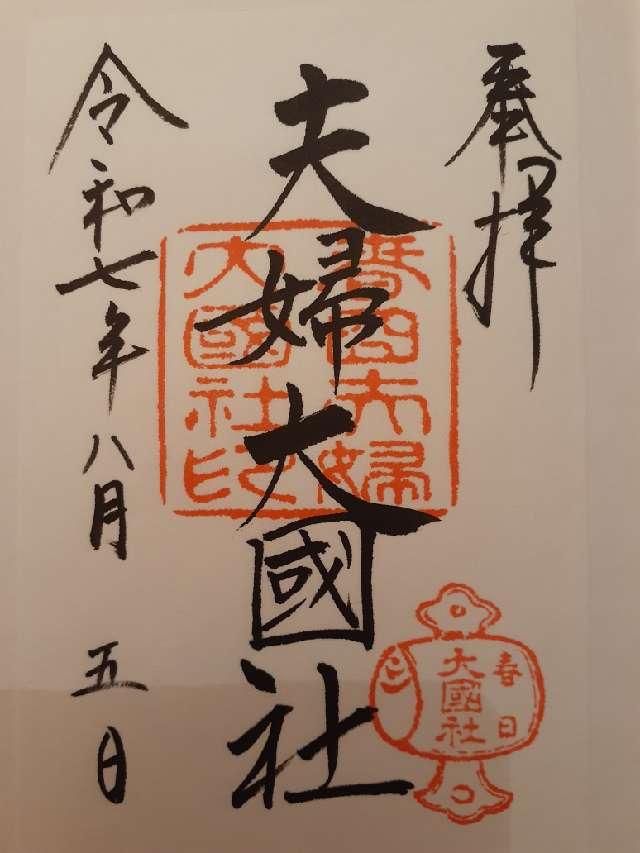 奉拝
夫婦大國社
令和七年八月五日
春日夫婦
大國社印
春日
大國社